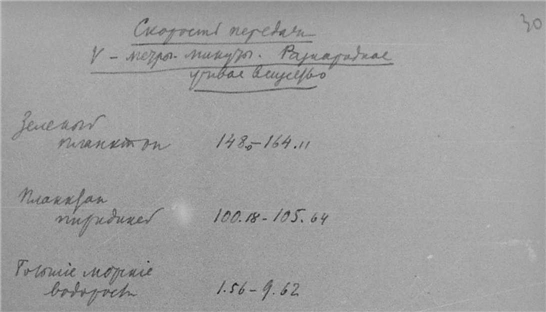 30
Скорость передачи
V – метры. минуты. Разнородное
живое вещество
Зеленый
планктон 148.0–164.11
Планктон
перидиней 100.18–105.64
морские
водоросли 1.56–9.62